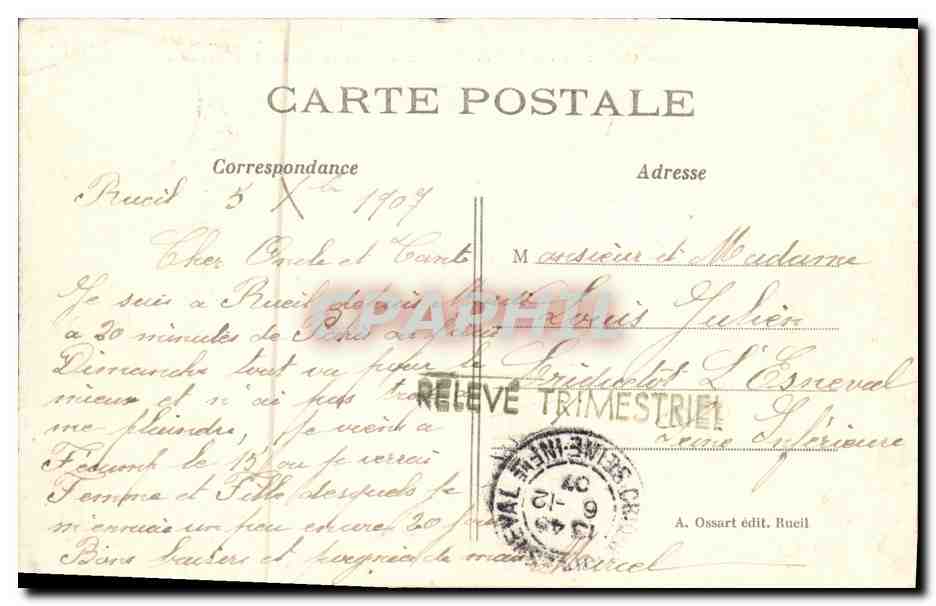 CARTE POSTALE
Correspondance
Adresse
Rueil 5 Xbre 1907
Cher Oncle et Tante
Je suis a Rueil depuis
a 20 minutes de Paris
Dimanche tout va pour le
mieux et n ai pas
me plaindre, je viens a
Fécamp le 15 ou je verrai
Femme et Fille desquels je
m'ennuie un peu encore 20
Bons baisers et poignée de main Marcel
Monsieur et Madame
Louis Julien
Criquetot L'Esneval
Seine Inférieure
RELEVÉ TRIMESTRIEL
ESNEVAL SEINE-INFRE
6 -12
07
A. Ossart édit. Rueil
CPAPHIL